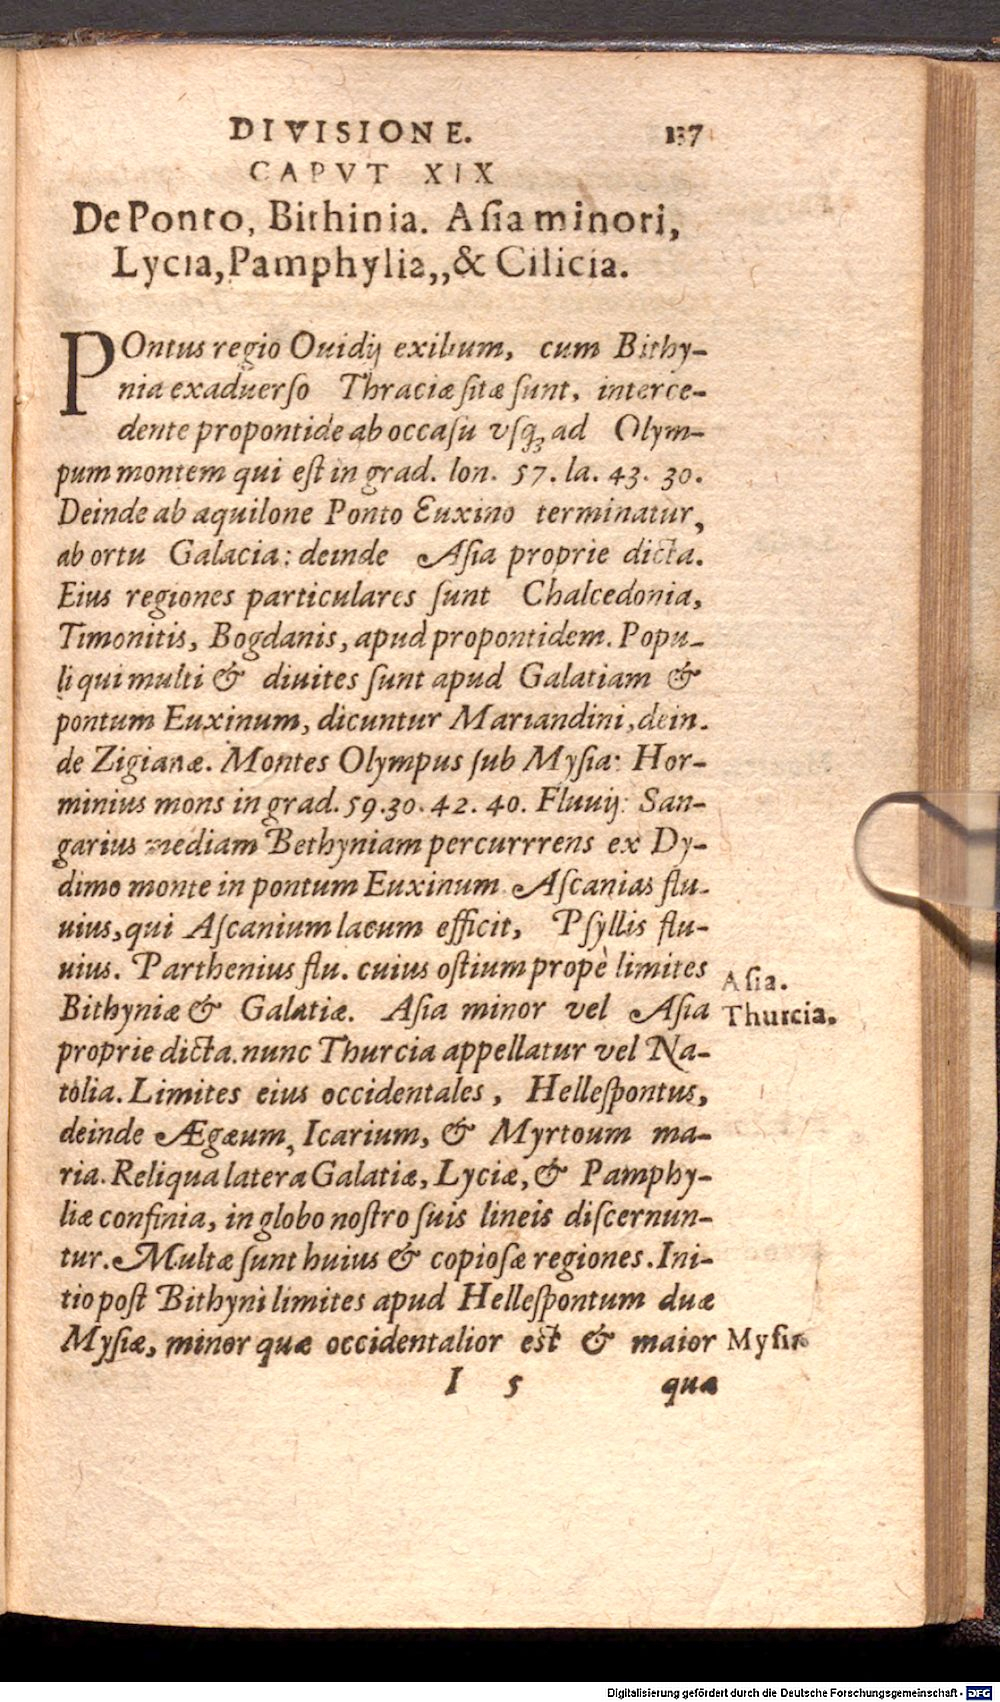 DIVISIONE. 137
CAPVT XIX
De Ponto, Bithinia. Aſia minori,
Lycia, Pamphylia,, & Cilicia.
POntus regio Ouidij exilium, cum Bithy-
nia exaduerſo Thraciæ ſitæ ſunt, interce-
dente propontide ab occaſu vſq́ꝫ ad Olym-
pum montem qui eſt in grad. lon. 57. la. 43. 30.
Deinde ab aquilone Ponto Euxino terminatur,
ab ortu Galacia: deinde Aſia proprie dicta.
Eius regiones particulares ſunt Chalcedonia,
Timonitis, Bogdanis, apud propontidem. Popu-
li qui multi & diuites ſunt apud Galatiam &
pontum Euxinum, dicuntur Mariandini, dein-
de Zigianæ. Montes Olympus ſub Myſia: Hor-
minius mons in grad. 59.30. 42. 40. Fluuij: San-
garius mediam Bethyniam percurrrens ex Dy-
dimo monte in pontum Euxinum. Aſcanias flu-
uius, qui Aſcanium lacum efficit, Pſyllis flu-
uius. Parthenius flu. cuius oſtium propè limites
Bithyniæ & Galatiæ. Aſia minor vel Aſia
Aſia.
Thurcia.
proprie dicta. nunc Thurcia appellatur vel Na-
tolia. Limites eius occidentales, Helleſpontus,
deinde Ægæum, Icarium, & Myrtoum ma-
ria. Reliqua latera Galatiæ, Lyciæ, & Pamphy-
liæ confinia, in globo noſtro ſuis lineis diſcernun-
tur. Multæ ſunt huius & copioſæ regiones. Ini-
tio poſt Bithyni limites apud Helleſpontum duæ
Myſiæ, minor quæ occidentalior est & maior
Myſia
I 5 qua
Digitalisierung gefördert durch die Deutsche Forschungsgemeinschaft - DFG